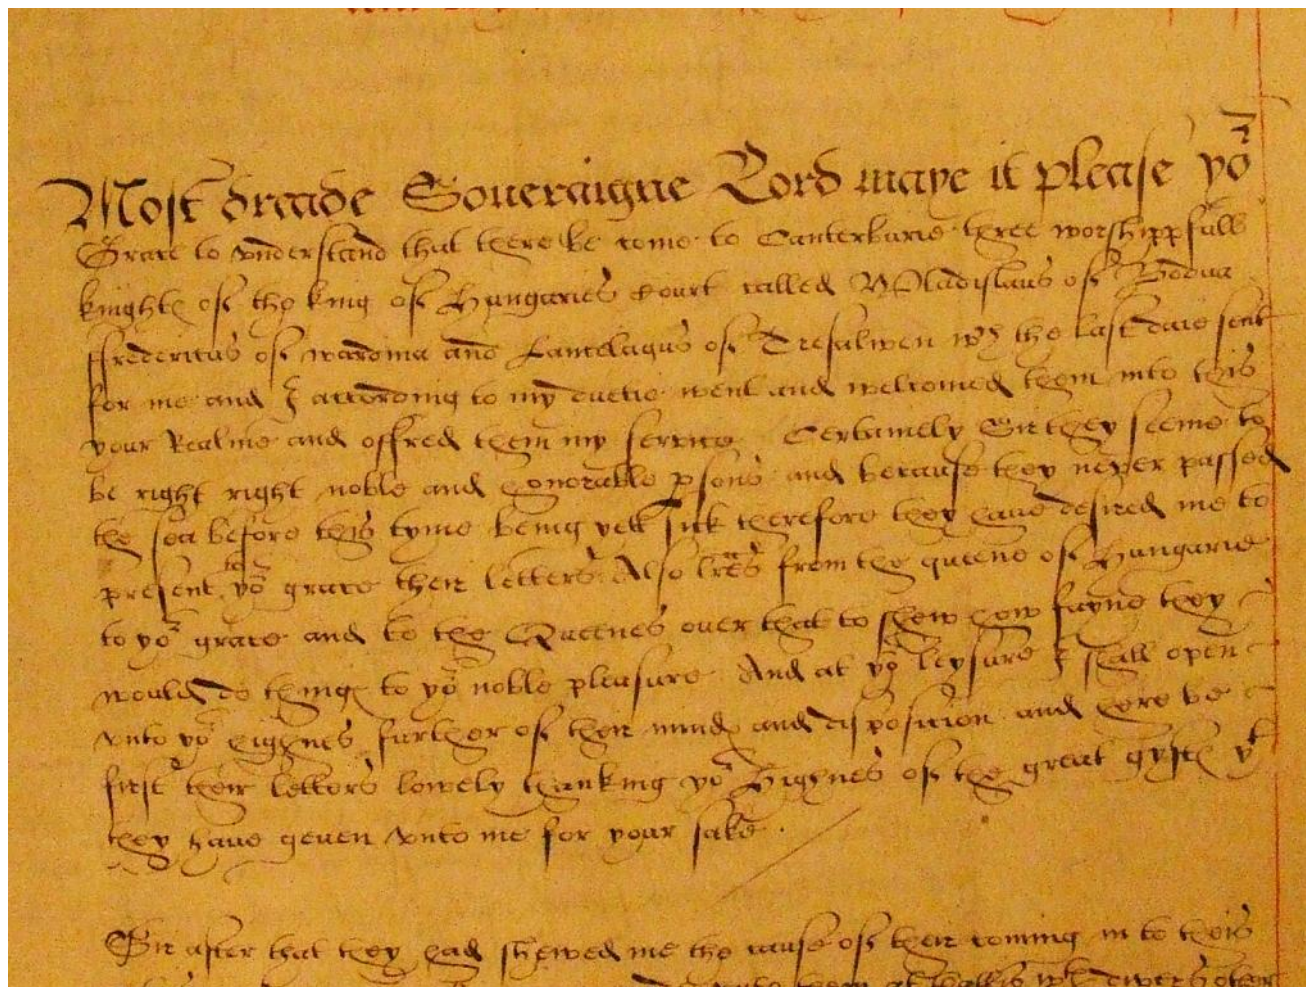 Most dreade Soueraigne Lord maye it please yor
Grace to vnderstand that there be come to Canterburie three worshippfull
knightes of the king of Hungaries Court called Wladislaus of Bodna
ffredericus of wardma and Lamelagus of Tresulwen wch the last daie sent
for me and I according to my duetie went and welcomed them into this
your Realme and offred them my service Certainely Sir they seeme to
be right right noble and honorable psons and because they never passed
the sea before this tyme being yett sick therefore they haue desired me to
present to yor grace their letters. Also lres from the queene of Hungarie
to yor grace and to the Queenes over that to shew how fayne they
would do thinges to yor noble pleasure And at yor leysure I shall open
vnto yor highnes further of their mindes and disposicion and here be
first their letters lowely thanking yor Highnes of the great gyftes yt
they haue geuen vnto me for your sake.
Sir after that they had shewed me the cause of their coming in to this
them at divers other